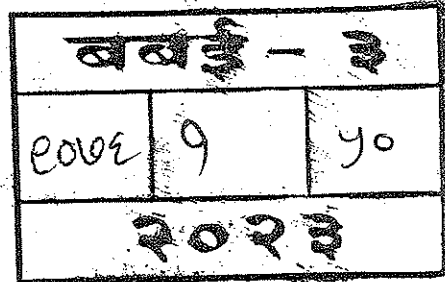 बबई - ३
१०७६ १ ५०
२०२३